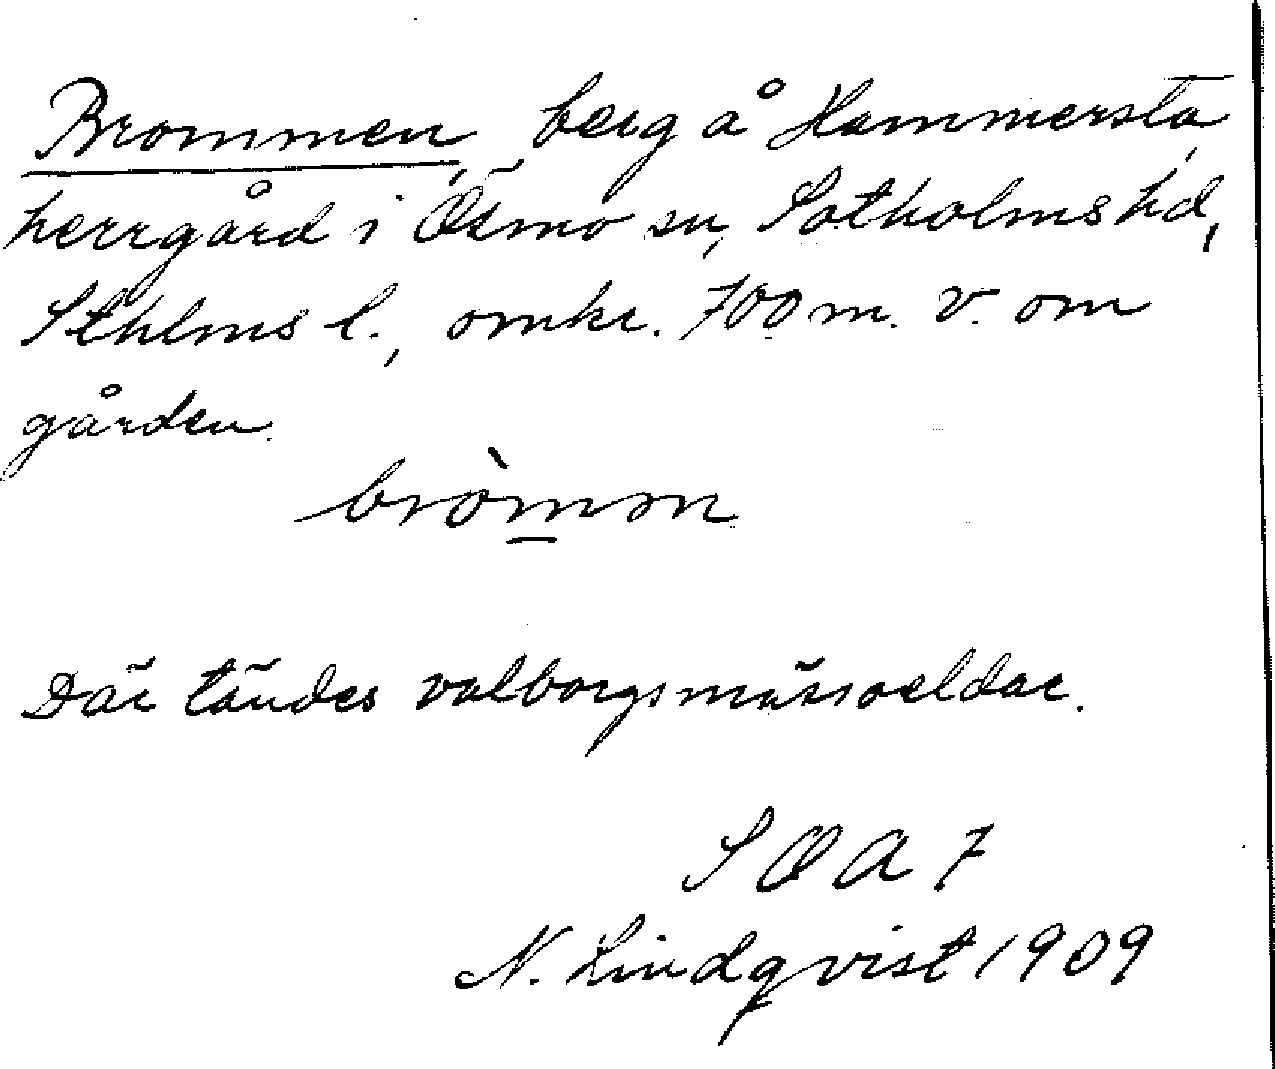 Brommen, berg å Hammersta
herrgård i Ösmo sn, Sotholms hd,
Sthlms l., omkr. 700 m. V. om
gården.
bròmmn
Där tändes valborgsmässoeldar.
SOA 7
N. Lindqvist 1909